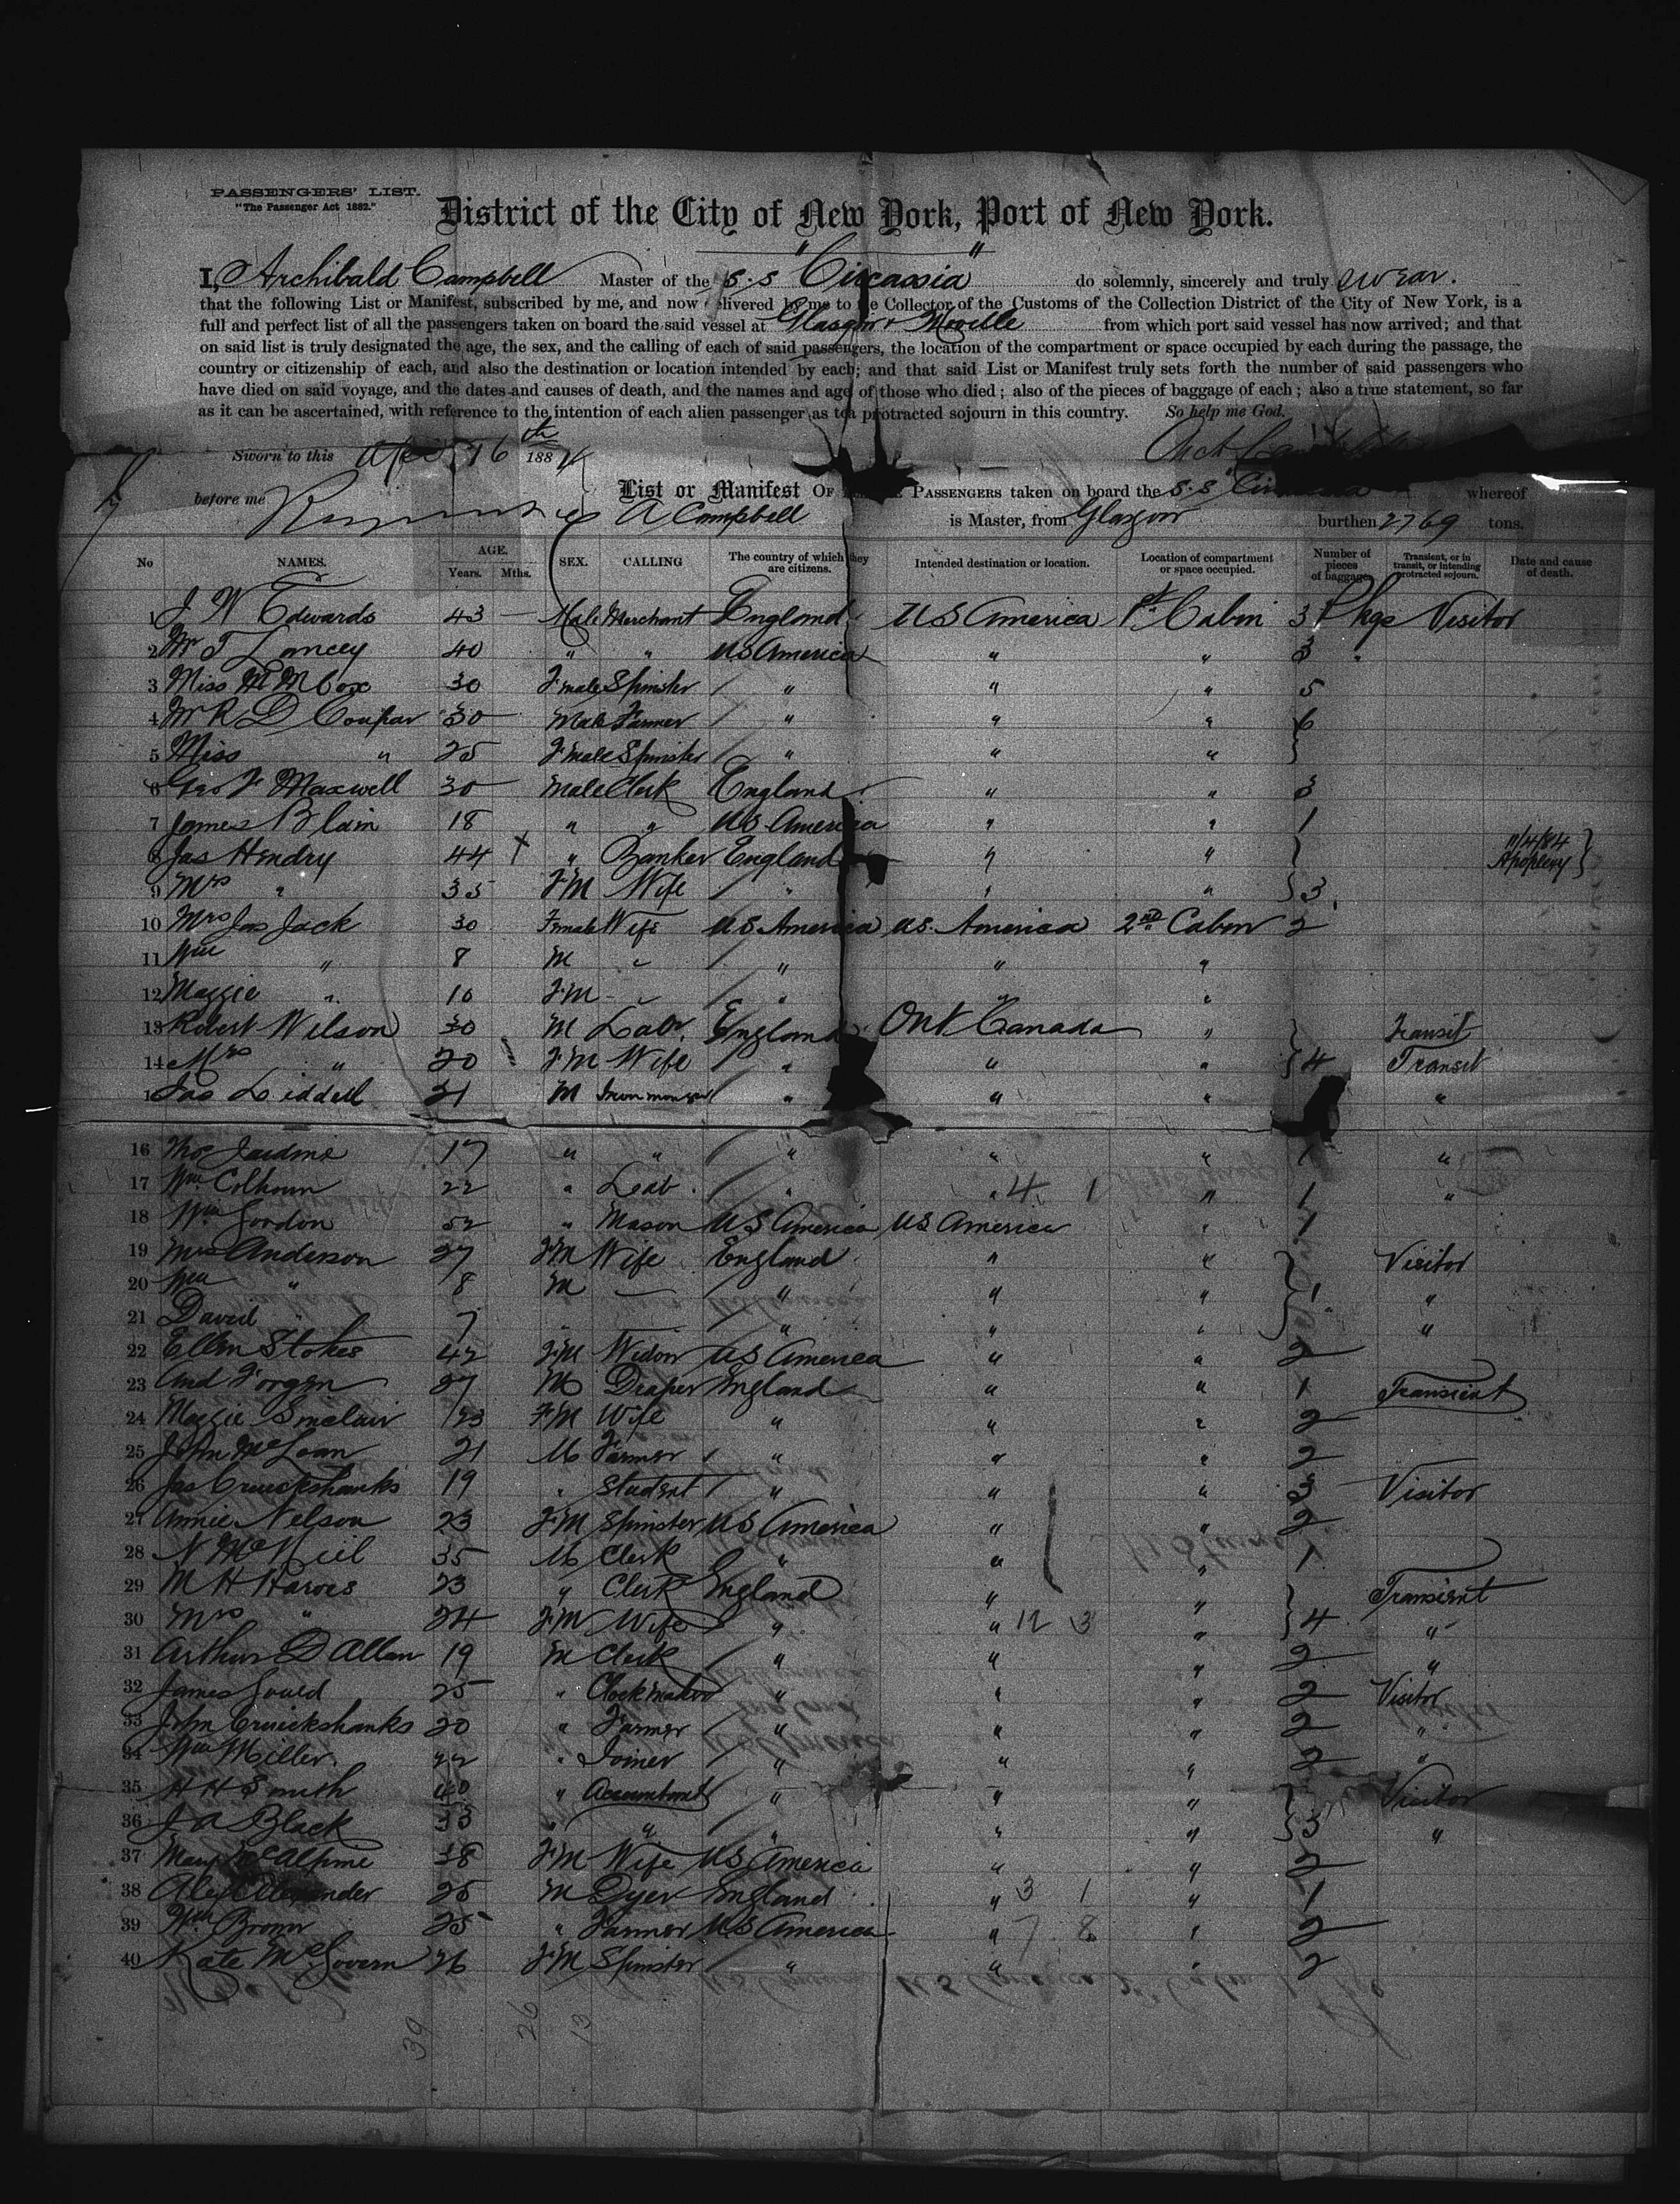 PASSENGERS' LIST.
"The Passenger Act 1882."
District of the City of New York, Port of New York.
I, Archibald Campbell Master of the S.S "Circassia" do solemnly, sincerely and truly swear.
that the following List or Manifest, subscribed by me, and now delivered by me to the Collector of the Customs of the Collection District of the City of New York, is a
full and perfect list of all the passengers taken on board the said vessel at Glasgow & Moville from which port said vessel has now arrived; and that
on said list is truly designated the age, the sex, and the calling of each of said passengers, the location of the compartment or space occupied by each during the passage, the
country or citizenship of each, and also the destination or location intended by each; and that said List or Manifest truly sets forth the number of said passengers who
have died on said voyage, and the dates and causes of death, and the names and age of those who died; also of the pieces of baggage of each; also a true statement, so far
as it can be ascertained, with reference to the intention of each alien passenger as to a protracted sojourn in this country. So help me God.
Sworn to this April 16th 1884
before me
List or Manifest OF PASSENGERS taken on board the S.S whereof
A Campbell is Master, from Glasgow burthen 2769 tons.
No NAMES. AGE. Years. Mths. SEX. CALLING The country of which they are citizens. Intended destination or location. Location of compartment or space occupied. Number of pieces of baggage Transient, or in transit, or intending protracted sojourn. Date and cause of death.
1 J W Edwards 43 — Male Merchant England US America 1st Cabin 3 Pkgs Visitor
2 Mr T Lancey 40 " " US America " " 3 "
3 Miss M M Cox 30 Fmale Spinster " " " 5
4 Mr R D Coupar 30 Male Farmer " " " 6
5 Miss " 25 Fmale Spinster " " "
6 Geo F Maxwell 30 Male Clerk England " " 3
7 James Blain 18 " " US America " " 1
8 Jas Hendry 44 " Banker England " " 11/4/84 Apoplexy
9 Mrs " 35 FM Wife " " " 3
10 Mrs Jas Jack 30 Female Wife US America US. America 2nd Cabin 2
11 Wm " 8 M " " " "
12 Maggie " 10 FM " " " "
13 Robert Wilson 30 M Labr. England Ont Canada " Transit
14 Mrs " 20 FM Wife " " " 4 Transit
15 Jas Liddell 21 M Ironmonger " " " "
16 Thos Jardine 17 " " " " " 1 "
17 Wm Colhoun 22 " Lab. " " 4 1 " 1 "
18 Wm Gordon 52 " Mason US America US America " 1
19 Mrs Anderson 27 FM Wife England " " Visitor
20 Wm " 8 M — " " " 1 "
21 David " 7 " — " " " "
22 Ellen Stokes 42 FM Widow US America " " 2
23 And Forgan 27 M Draper England " " 1 Transient
24 Maggie Sinclair 23 FM Wife " " " 2
25 John McLoan 21 M Farmer " " " 2
26 Jas Cruickshanks 19 " Student " " " 3 Visitor
27 Annie Nelson 23 FM Spinster US America " " 2
28 N McNeil 35 M Clerk " " " 1
29 M H 23 " Clerk England " " Transient
30 Mrs " 24 FM Wife " " 12 3 " 4 "
31 Arthur D Allan 19 M Clerk " " " 2 "
32 James Gould 25 " Clockmaker " " " 2 Visitor
33 John Cruickshanks 20 " Farmer " " " 2 "
34 Wm Miller 22 " Joiner " " " 2 "
35 H H Smith 40 " Accountant " " " Visitor
36 J A Black 33 " " " " " 3 "
37 Mary McAlpine 38 FM Wife US America " " 2
38 Alex Alexander 25 M Dyer England " 3 1 " 1
39 Wm Brown 25 " Farmer US America " 7 8 " 2
40 Kate McGovern 26 FM Spinster " " " 2
39 26 13